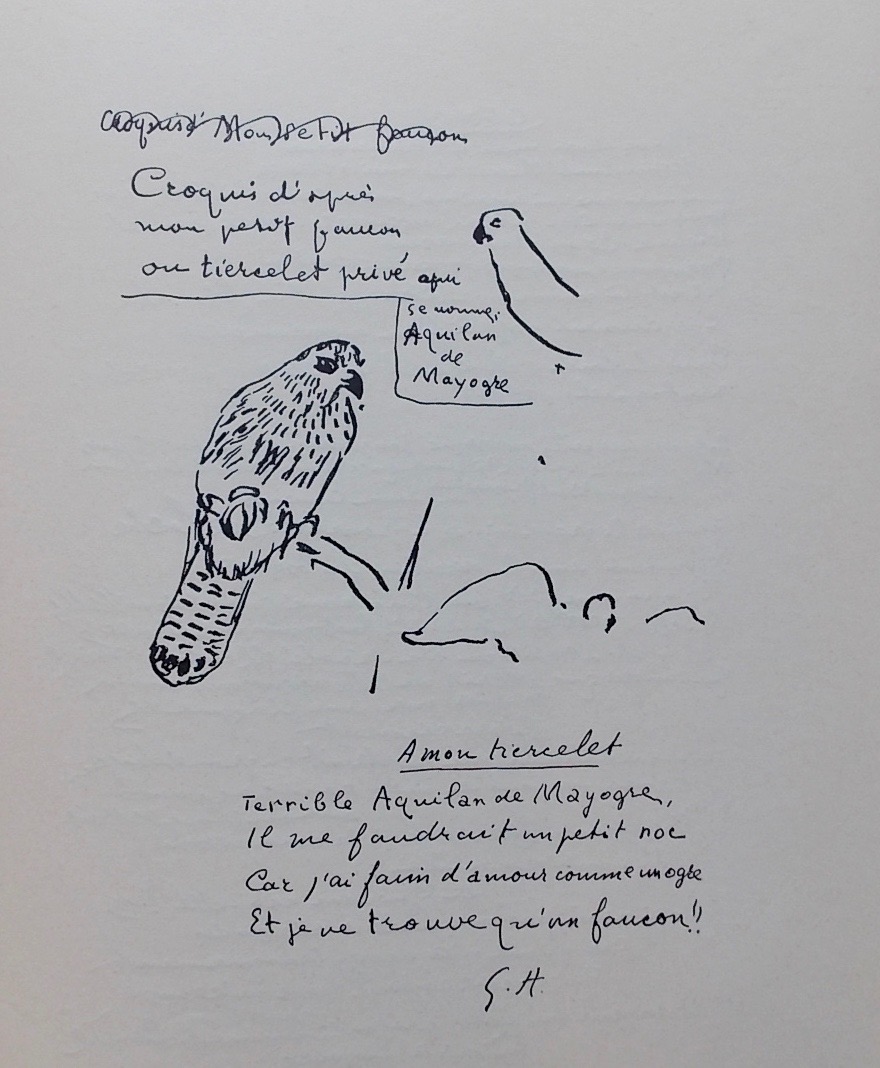 Croquis d'après
mon petit faucon
ou tiercelet privé qui
se nomme
Aquilan
de
Mayogre
A mon tiercelet
Terrible Aquilan de Mayogre,
Il me faudrait un petit noc
Car j'ai faim d'amour comme un ogre
Et je ne trouve qu'un faucon!!
G.H.